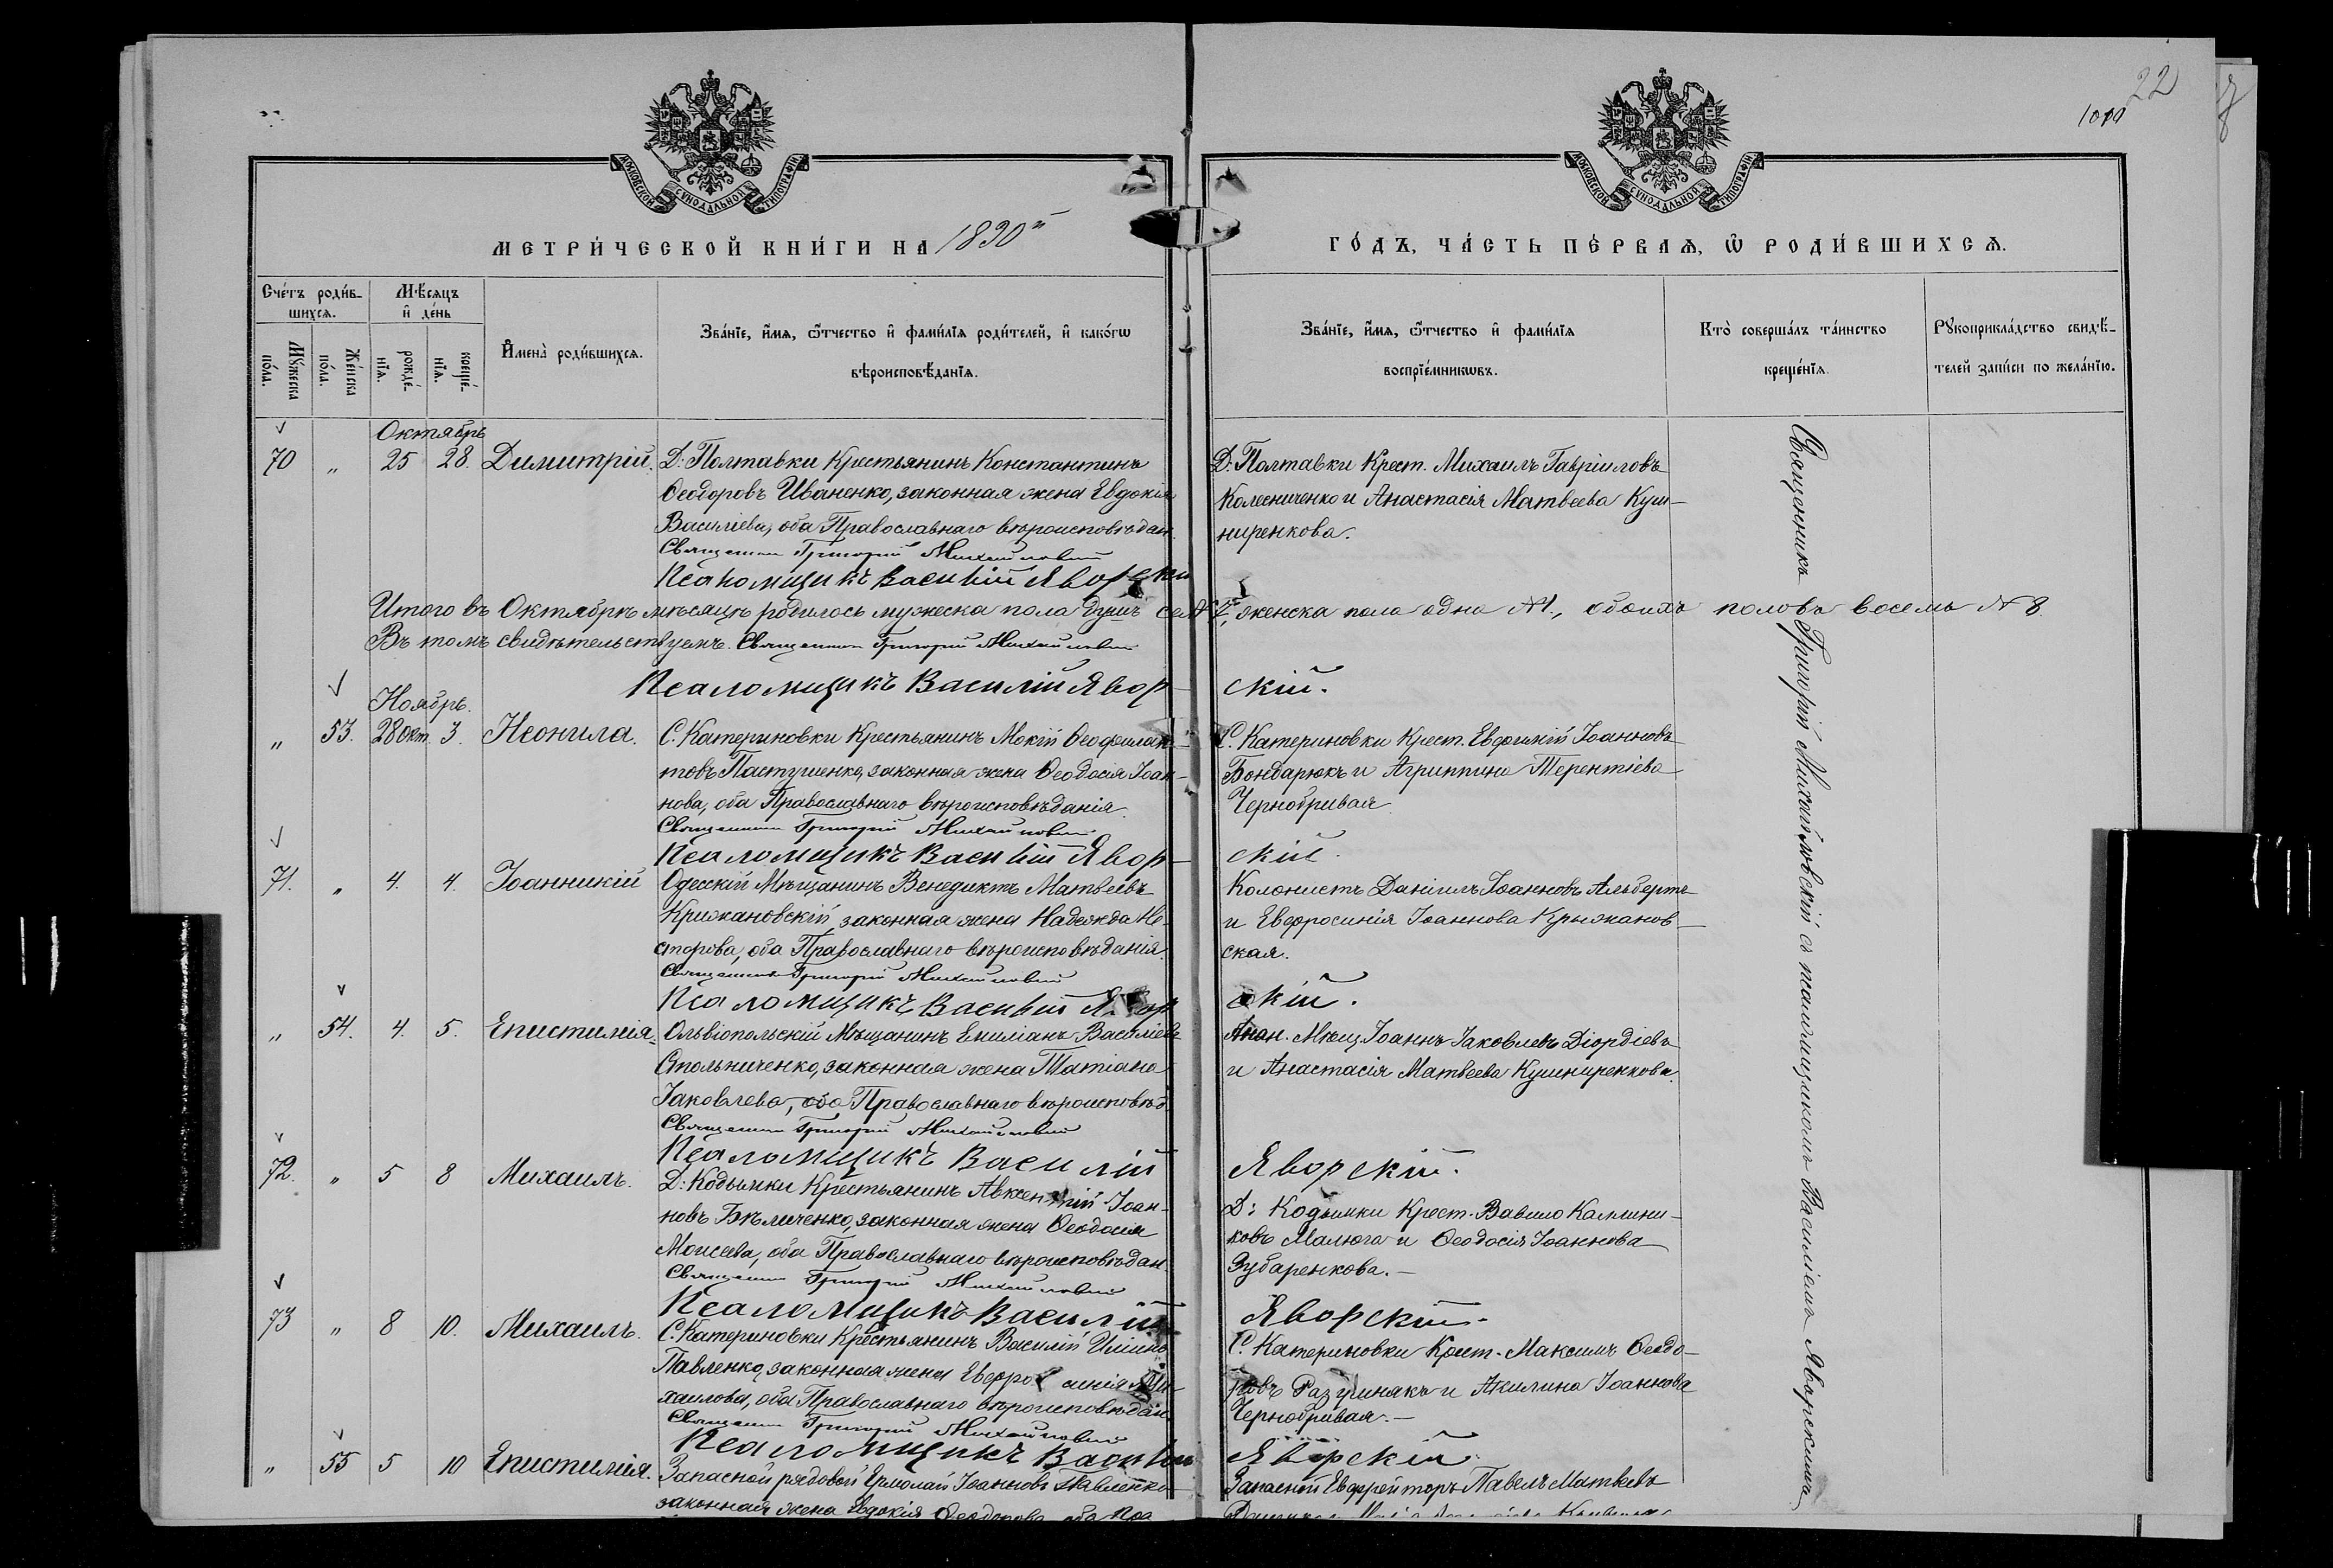 22
1010
МОСКОВСКОЙ СѴНОДАЛЬНОЙ ТИПОГРАФІИ
МОСКОВСКОЙ СѴНОДАЛЬНОЙ ТИПОГРАФІИ
МЕТРИ́ЧЕСКОЙ КНИ́ГИ НА 1890й
ГО́ДЪ, ЧА́СТЬ ПЕ́РВАѦ, Ѡ РОДИ́ВШИХСѦ.
Сче́тъ роди́в-
шихсѧ.
Мꙋ́жеска по́ла.
Же́нска по́ла.
Мѣ́сѧцъ и҆ де́нь
рожде́-нїѧ.
креще́-нїѧ.
И҆мена̀ роди́вшихсѧ.
Зва́нїе, и҆́мѧ, ѻ҆́тчество и҆ фами́лїѧ роди́телей, и҆ како́гѡ
вѣроисповѣ́данїѧ.
Зва́нїе, и҆́мѧ, ѻ҆́тчество и҆ фами́лїѧ
воспрїе́мникѡвъ.
Кто̀ соверша́лъ та́инство
креще́нїѧ.
Рꙋкоприкла́дство свидѣ́-
телей за́писи по жела́нїю.
Октябрь
70 „ 25 28. Димитрій. Д: Полтавки Крестьянинъ Константинъ
Ѳеодоровъ Иваненко, законная жена Евдокія
Василіева, оба Православнаго вѣроисповѣдан.
Священникъ Григорій Михайловскій
Псаломщикъ Василій Яворскій
Д: Полтавки Крест. Михаилъ Гавріиловъ
Колесниченко и Анастасія Матвеева Куш-
ниренкова.
Итого въ Октябрѣ мѣсяцѣ родилось мужеска пола душъ сем 7, женска пола одна №1., обоихъ половъ восемь №8.
Въ томъ свидѣтельствуемъ. Священникъ Григорій Михайловскій
Псаломщикъ Василій Явор-
скій.
Ноябрь.
„ 53. 28 окт. 3. Неонила. С. Катериновки Крестьянинъ Мокій Ѳеофилак-
товъ Пастушенко, законная жена Ѳеодосія Іоан-
нова, оба Православнаго вѣроисповѣданія.
Священникъ Григорій Михайловскій
Псаломщикъ Василій Явор-
С. Катериновки Крест. Евфимій Іоанновъ
Бондарюкъ и Агриппина Терентіева
Чернобривая
скій.
71. „ 4. 4. Іоанникій Одесскій Мѣщанинъ Венедиктъ Матвеевъ
Крижановскій, законная жена Надежда Не-
сторова, оба Православнаго вѣроисповѣданія.
Священникъ Григорій Михайловскій
Псаломщикъ Василій Явор
Колонистъ Даніилъ Іоанновъ Альбертъ
и Евфросинія Іоаннова Крыжанов-
ская.
скій.
„ 54. 4. 5. Епистимія. Ольвіопольскій Мѣщанинъ Емиліанъ Василіевъ
Стольниченко, законная жена Татіана
Іаковлева, оба Православнаго вѣроисповѣд.
Священникъ Григорій Михайловскій
Псаломщикъ Василій
Анан. Мѣщ. Іоаннъ Іаковлевъ Діордіевъ
и Анастасія Матвеева Кушниренкова.
Яворскій.
72. „ 5 8 Михаилъ. Д: Кодымки Крестьянинъ Авксентій Іоан-
новъ Бѣличенко, законная жена Ѳеодосія
Моисеева, оба Православнаго вѣроисповѣдан.
Священникъ Григорій Михайловскій
Псаломщикъ Василій
Д: Кодымки Крест. Вавило Каллини-
ковъ Малюга и Ѳеодосія Іоаннова
Зубаренкова.—
Яворскій.
73 „ 8 10. Михаилъ. С. Катериновки Крестьянинъ Василій
Павленко, законная жена Евфросинія Ми-
хаилова, оба Православнаго вѣроисповѣдан.
Священникъ Григорій Михайловскій
Псаломщикъ Василій
С. Катериновки Крест. Максимъ Ѳеодо-
ровъ и Акилина Іоаннова
Чернобривая.—
Яворскій.
„ 55 5 10 Епистимія. Запасной рядовой Ермолай Іоанновъ Павленко
законная жена Евдокія Ѳеодорова, оба Пра
Запасной Ефрейторъ Павелъ Матвеевъ
Священникъ Григорій Михайловскій съ псаломщикомъ Василіемъ Яворскимъ